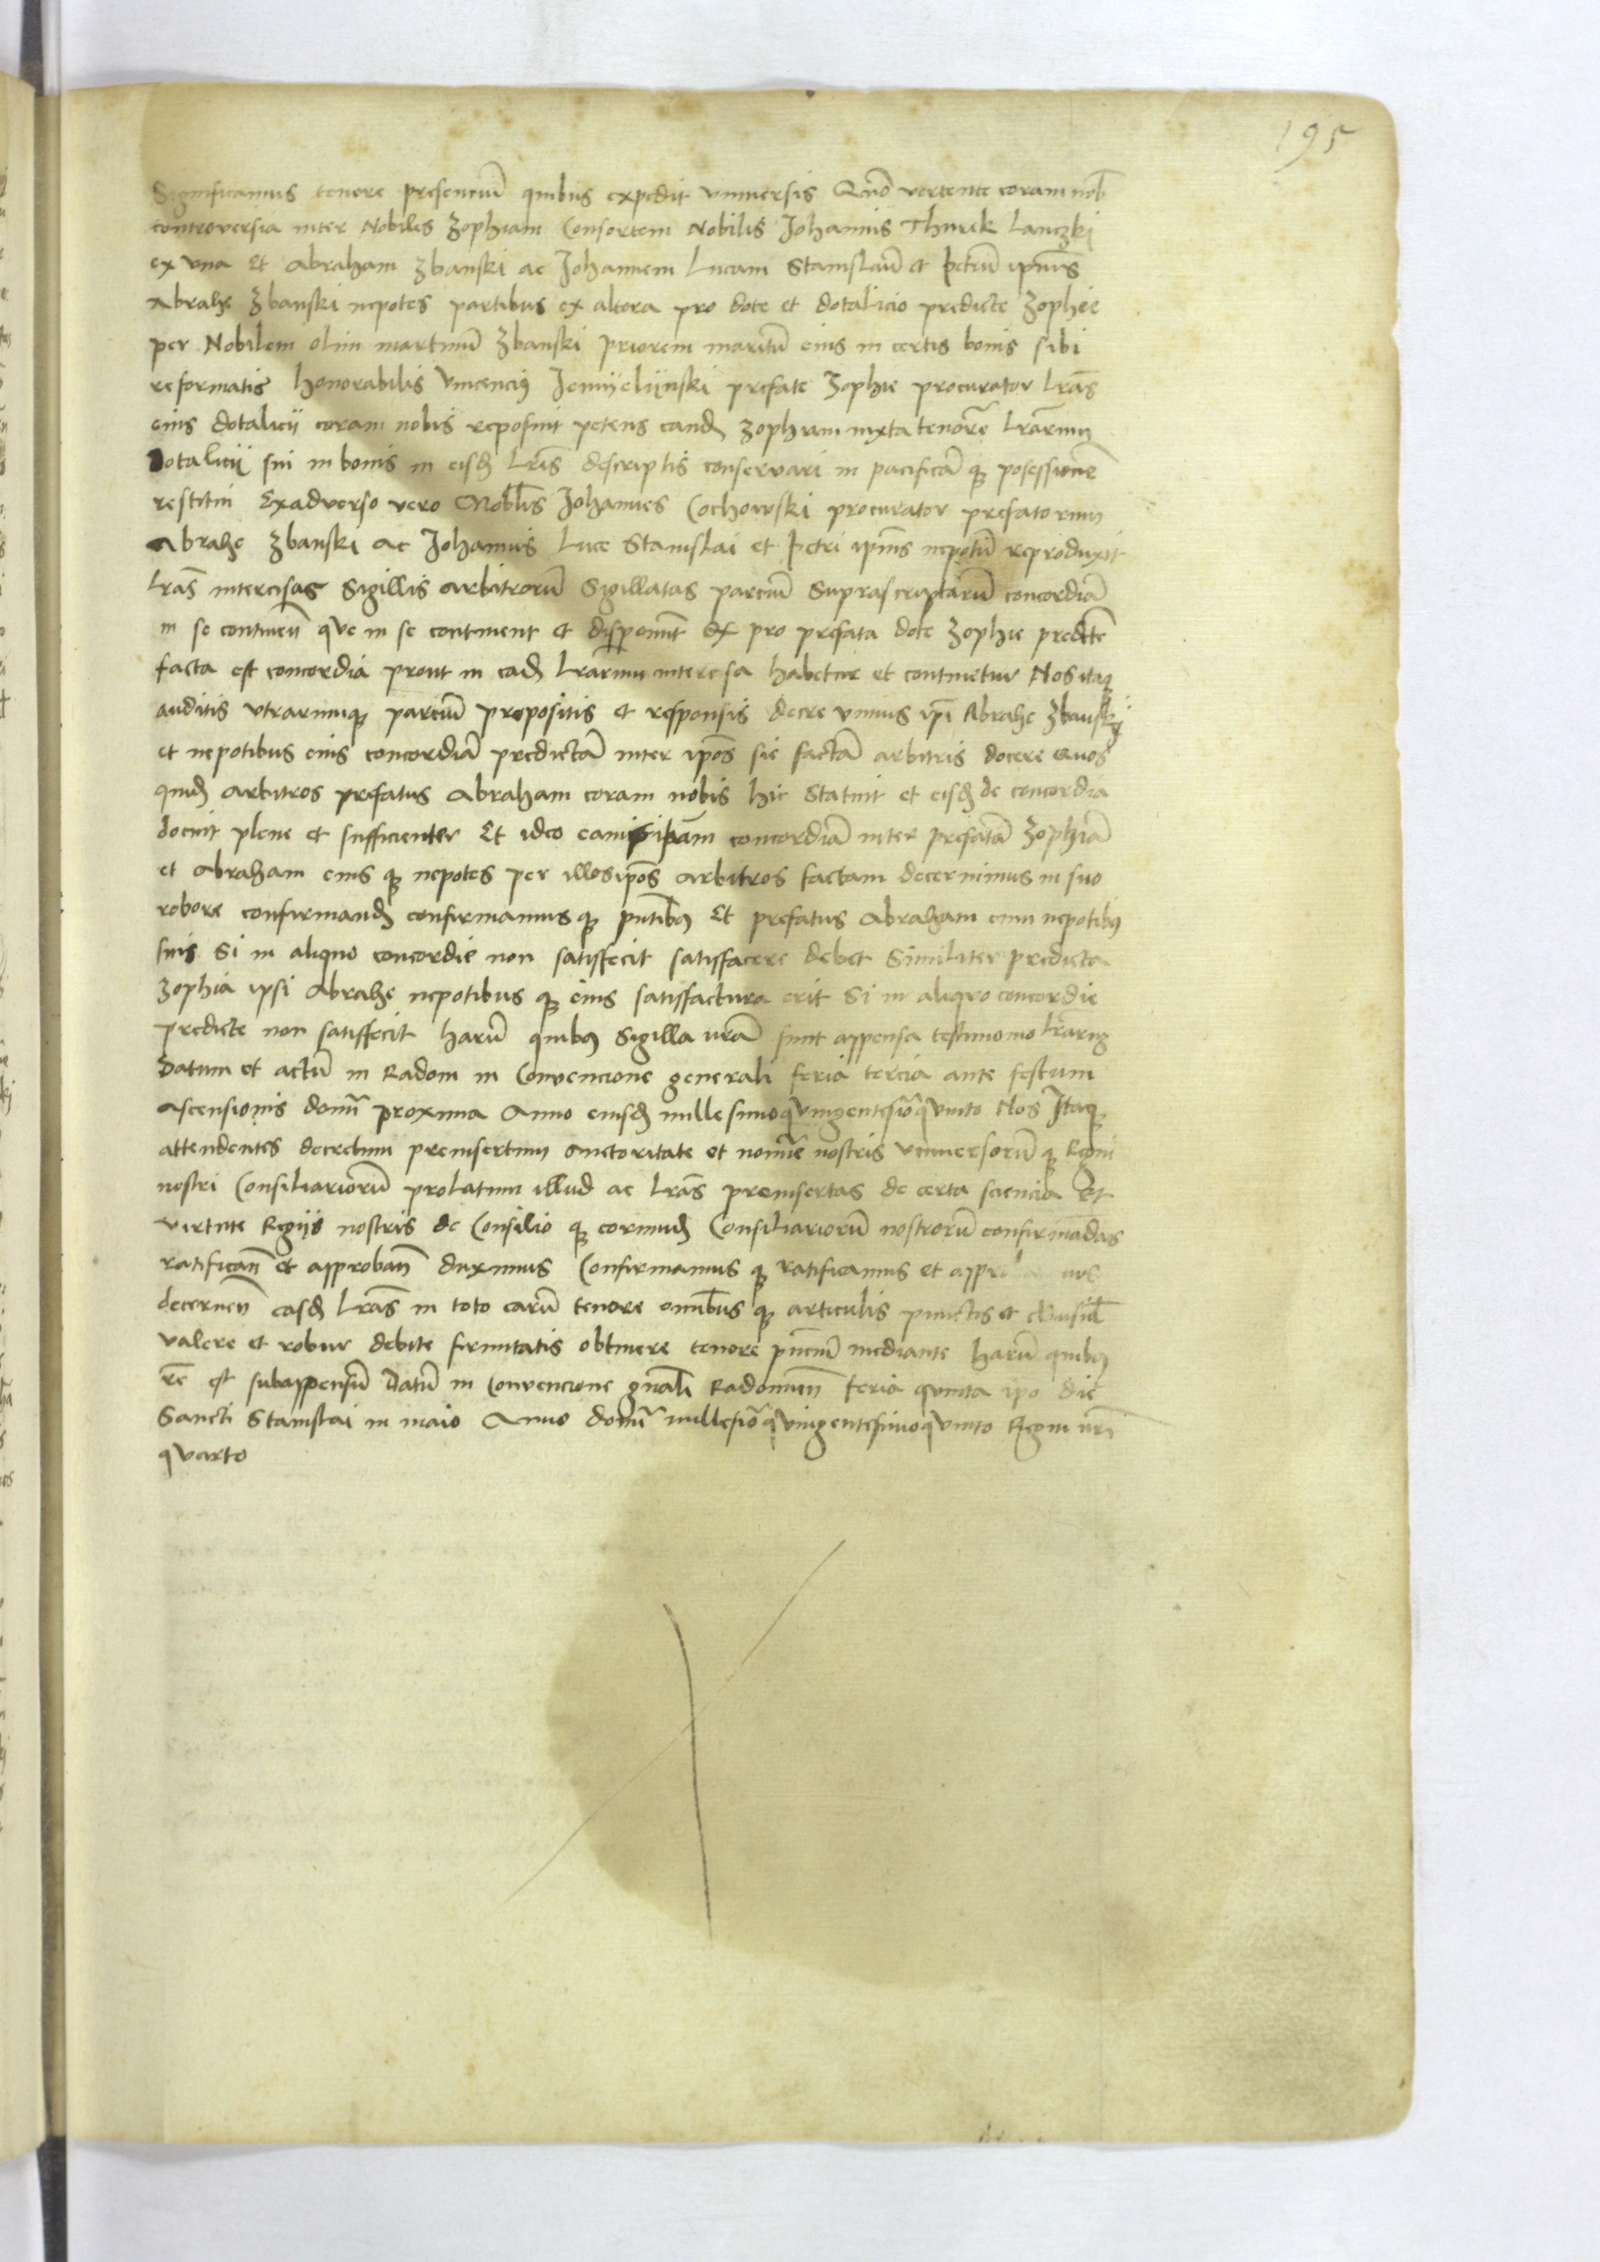 195
Significamus tenore presenciũ quibus expedit vniuersis Quõ vertente coram nob̃
controversia inter Nobiles Zophiam Consortem Nobilis Johannis Thurek Lanczki
ex vna Et Abraham Zbanski ac Johannem Lucam Stanislaũ et Petrũ ip̃ius
Abrahe Zbanski nepotes partibus ex altera pro dote et dotalicio predicte Zophie
per Nobilem olim martinũ Zbanski priorem maritũ eius in certis bonis sibi
reformatis honorabilis Vincenciꝰ prefate Zophie procurator lrãs
eius dotalicii coram nobis reposuit petens eandẽ Zophiam iuxta tenorẽ lrãrum
dotalicii sui in bonis in eisdẽ lrĩs descriptis conservari in pacificã qꝫ posessionẽ
restitui Exadverso vero Nobl̃is Johannes Cochowski procurator prefatorum
Abrahe Zbanski ac Johannis Luce Stanislai et Petri ip̃ius nepotũ reproduxit
lrãs intercisas Sigillis arbitrorũ Sigillatas parciũ Suprascriptarũ concordiã
in se continen̄ que in se continent et disponunt ex pro prefata dote Zophie predictẽ
facta est concordia prout in eadẽ lrãrum intercisa habetur et continetur Nos itaqꝫ
auditis vtrarumqꝫ parciũ propositis et responsis decrevimus ip̃i Abrahe Zbanski
et nepotibus eius concordiã predictã inter ip̃os sic factã arbitris docere Quos
quidẽ arbitros prefatus Abraham coram nobis hic Statuit et eisdẽ de concordia
docuit plene et sufficienter Et ideo eam ip̃am concordiã inter prefatã Zophiã
et Abraham eius qꝫ nepotes per illos ip̃os arbitros factam decernimus in suo
robore confirmandẽ confirmamus qꝫ pñtibꝰ Et prefatus Abraham cum nepotibꝰ
suis Si in aliquo concordie non satisfecit satisfacere debet Similiter predicta
Zophia ipsi Abrahe nepotibus qꝫ eius satisfactura erit Si in aliquo concordie
predicte non satisfecit harũ quibꝰ Sigilla nrã sunt appensa testimonio lrãrũ
Datum et actũ in Radom in Convencione generali feria tercia ante festum
Ascensionis domĩ proxima Anno eiusdẽ millesimoqvingentesiõqvinto Nos Itaqꝫ
attendentes decretum preinsertum auctoritate et nomĩe nostris vniuersorũ qꝫ Regni
nostri Consiliariorũ prolatum illud ac lrãs preinsertas de certa sciencia Et
virtute Regiis nostris de Consilio qꝫ eorundẽ Consiliariorũ nostrorũ confirmãdas
ratifican̄ et approban̄ duximus Confirmamus qꝫ ratificamus et
decernen̄ easdẽ lrãs in toto earũ tenore omĩbus qꝫ articulis punctis et clausul̃
valere et robur debite firmitatis obtinere tenore pñciũ mediante harũ quibꝰ
rẽ est subappensũ Datũ in Convencione gñali Radomien̄ feria qvinta ip̃o die
Sancti Stanislai in maio Anno domĩ millesiõqvingentesimoqvinto Regni nrĩ
qvarto